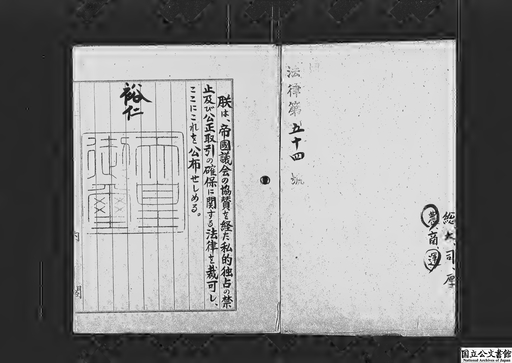 法律第五十四號
総大司厚
農商運
朕は、帝國議会の協賛を経た私的独占の禁
止及び公正取引の確保に関する法律を裁可し、
ここにこれを公布せしめる。
裕仁
天皇
御璽
内閣
国立公文書館
National Archives of Japan